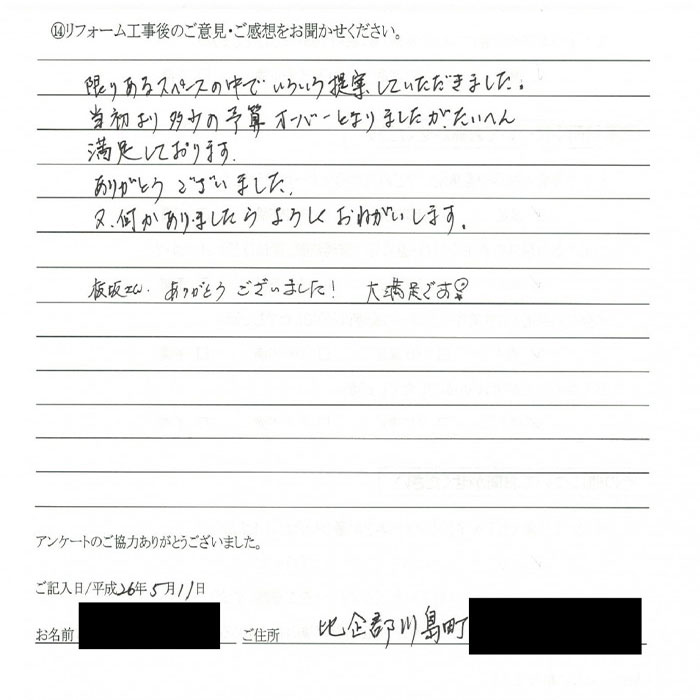 ⑭リフォーム工事後のご意見・ご感想をお聞かせください。
限りあるスペースの中でいろいろ提案していただきました。
当初より多少の予算オーバーとなりましたが、たいへん
満足しております。
ありがとうございました。
又、何かありましたらよろしくおねがいします。
板坂さん、ありがとうございました！ 大満足です
アンケートのご協力ありがとうございました。
ご記入日/平成26年5月11日
お名前 ご住所 比企郡川島町